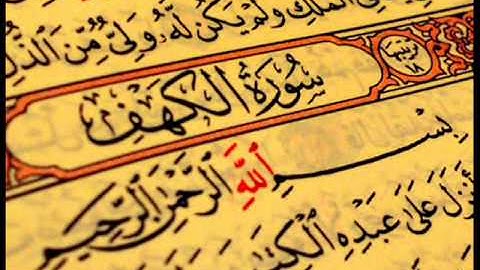 ٱلْمُلْكِ وَلَمْ يَكُن لَّهُۥ وَلِىٌّ مِّنَ ٱلذُّلِّ
سُورَةُ ٱلْكَهْفِ
بِسْمِ ٱللَّهِ ٱلرَّحْمَٰنِ ٱلرَّحِيمِ
أَنزَلَ عَلَىٰ عَبْدِهِ ٱلْكِتَٰبَ